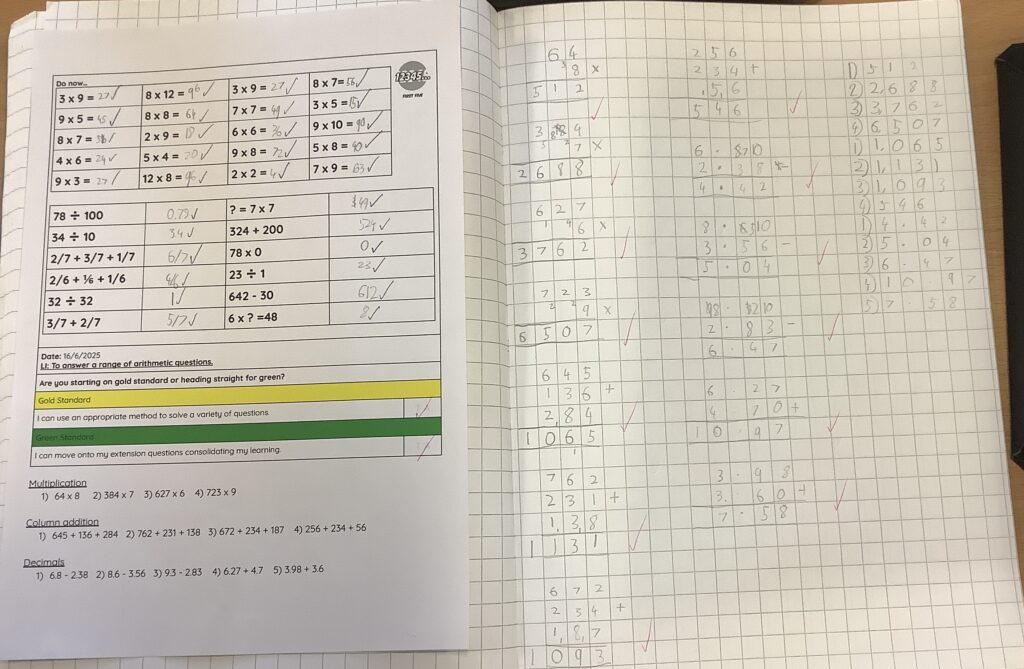 Do now...
3 x 9 = 27 8 x 12 = 96 3 x 9 = 27 8 x 7= 56
9 x 5 = 45 8 x 8 = 64 7 x 7 = 49 3 x 5 = 15
8 x 7 = 56 2 x 9 = 18 6 x 6 = 36 9 x 10 = 90
4 x 6 = 24 5 x 4 = 20 9 x 8 = 72 5 x 8 = 40
9 x 3 = 27 12 x 8 = 96 2 x 2 = 4 7 x 9 = 63
12345...
FIRST FIVE
78 ÷ 100 ? = 7 x 7 49
34 ÷ 10 3.4 324 + 200 524
2/7 + 3/7 + 1/7 6/7 78 x 0 0
2/6 + ⅙ + 1/6 4/6 23 ÷ 1 23
32 ÷ 32 1 642 - 30 612
3/7 + 2/7 5/7 6 x ? =48 8
Date: 16/6/2025
LI: To answer a range of arithmetic questions.
Are you starting on gold standard or heading straight for green?
Gold Standard
I can use an appropriate method to solve a variety of questions.
Green Standard
I can move onto my extension questions consolidating my learning.
Multiplication
1) 64 x 8 2) 384 x 7 3) 627 x 6 4) 723 x 9
Column addition
1) 645 + 136 + 284 2) 762 + 231 + 138 3) 672 + 234 + 187 4) 256 + 234 + 56
Decimals
1) 6.8 - 2.38 2) 8.6 - 3.56 3) 9.3 - 2.83 4) 6.27 + 4.7 5) 3.98 + 3.6
64
8 x
512
384
7 x
2688
627
6 x
3762
723
9 x
6507
645
136 +
284
1065
762
231 +
138
1131
672
234 +
187
1093
256
234 +
56
546
6.8710
2.38 -
4.42
8.6510
3.56 -
5.04
98.1210
2.83 -
6.47
6.27
4.70 +
10.97
3.98
3.60 +
7.58
1) 512
2) 2,688
3) 3,762
4) 6,507
1) 1,065
2) 1,131
3) 1,093
4) 546
1) 4.42
2) 5.04
3) 6.47
4) 10.97
5) 7.58